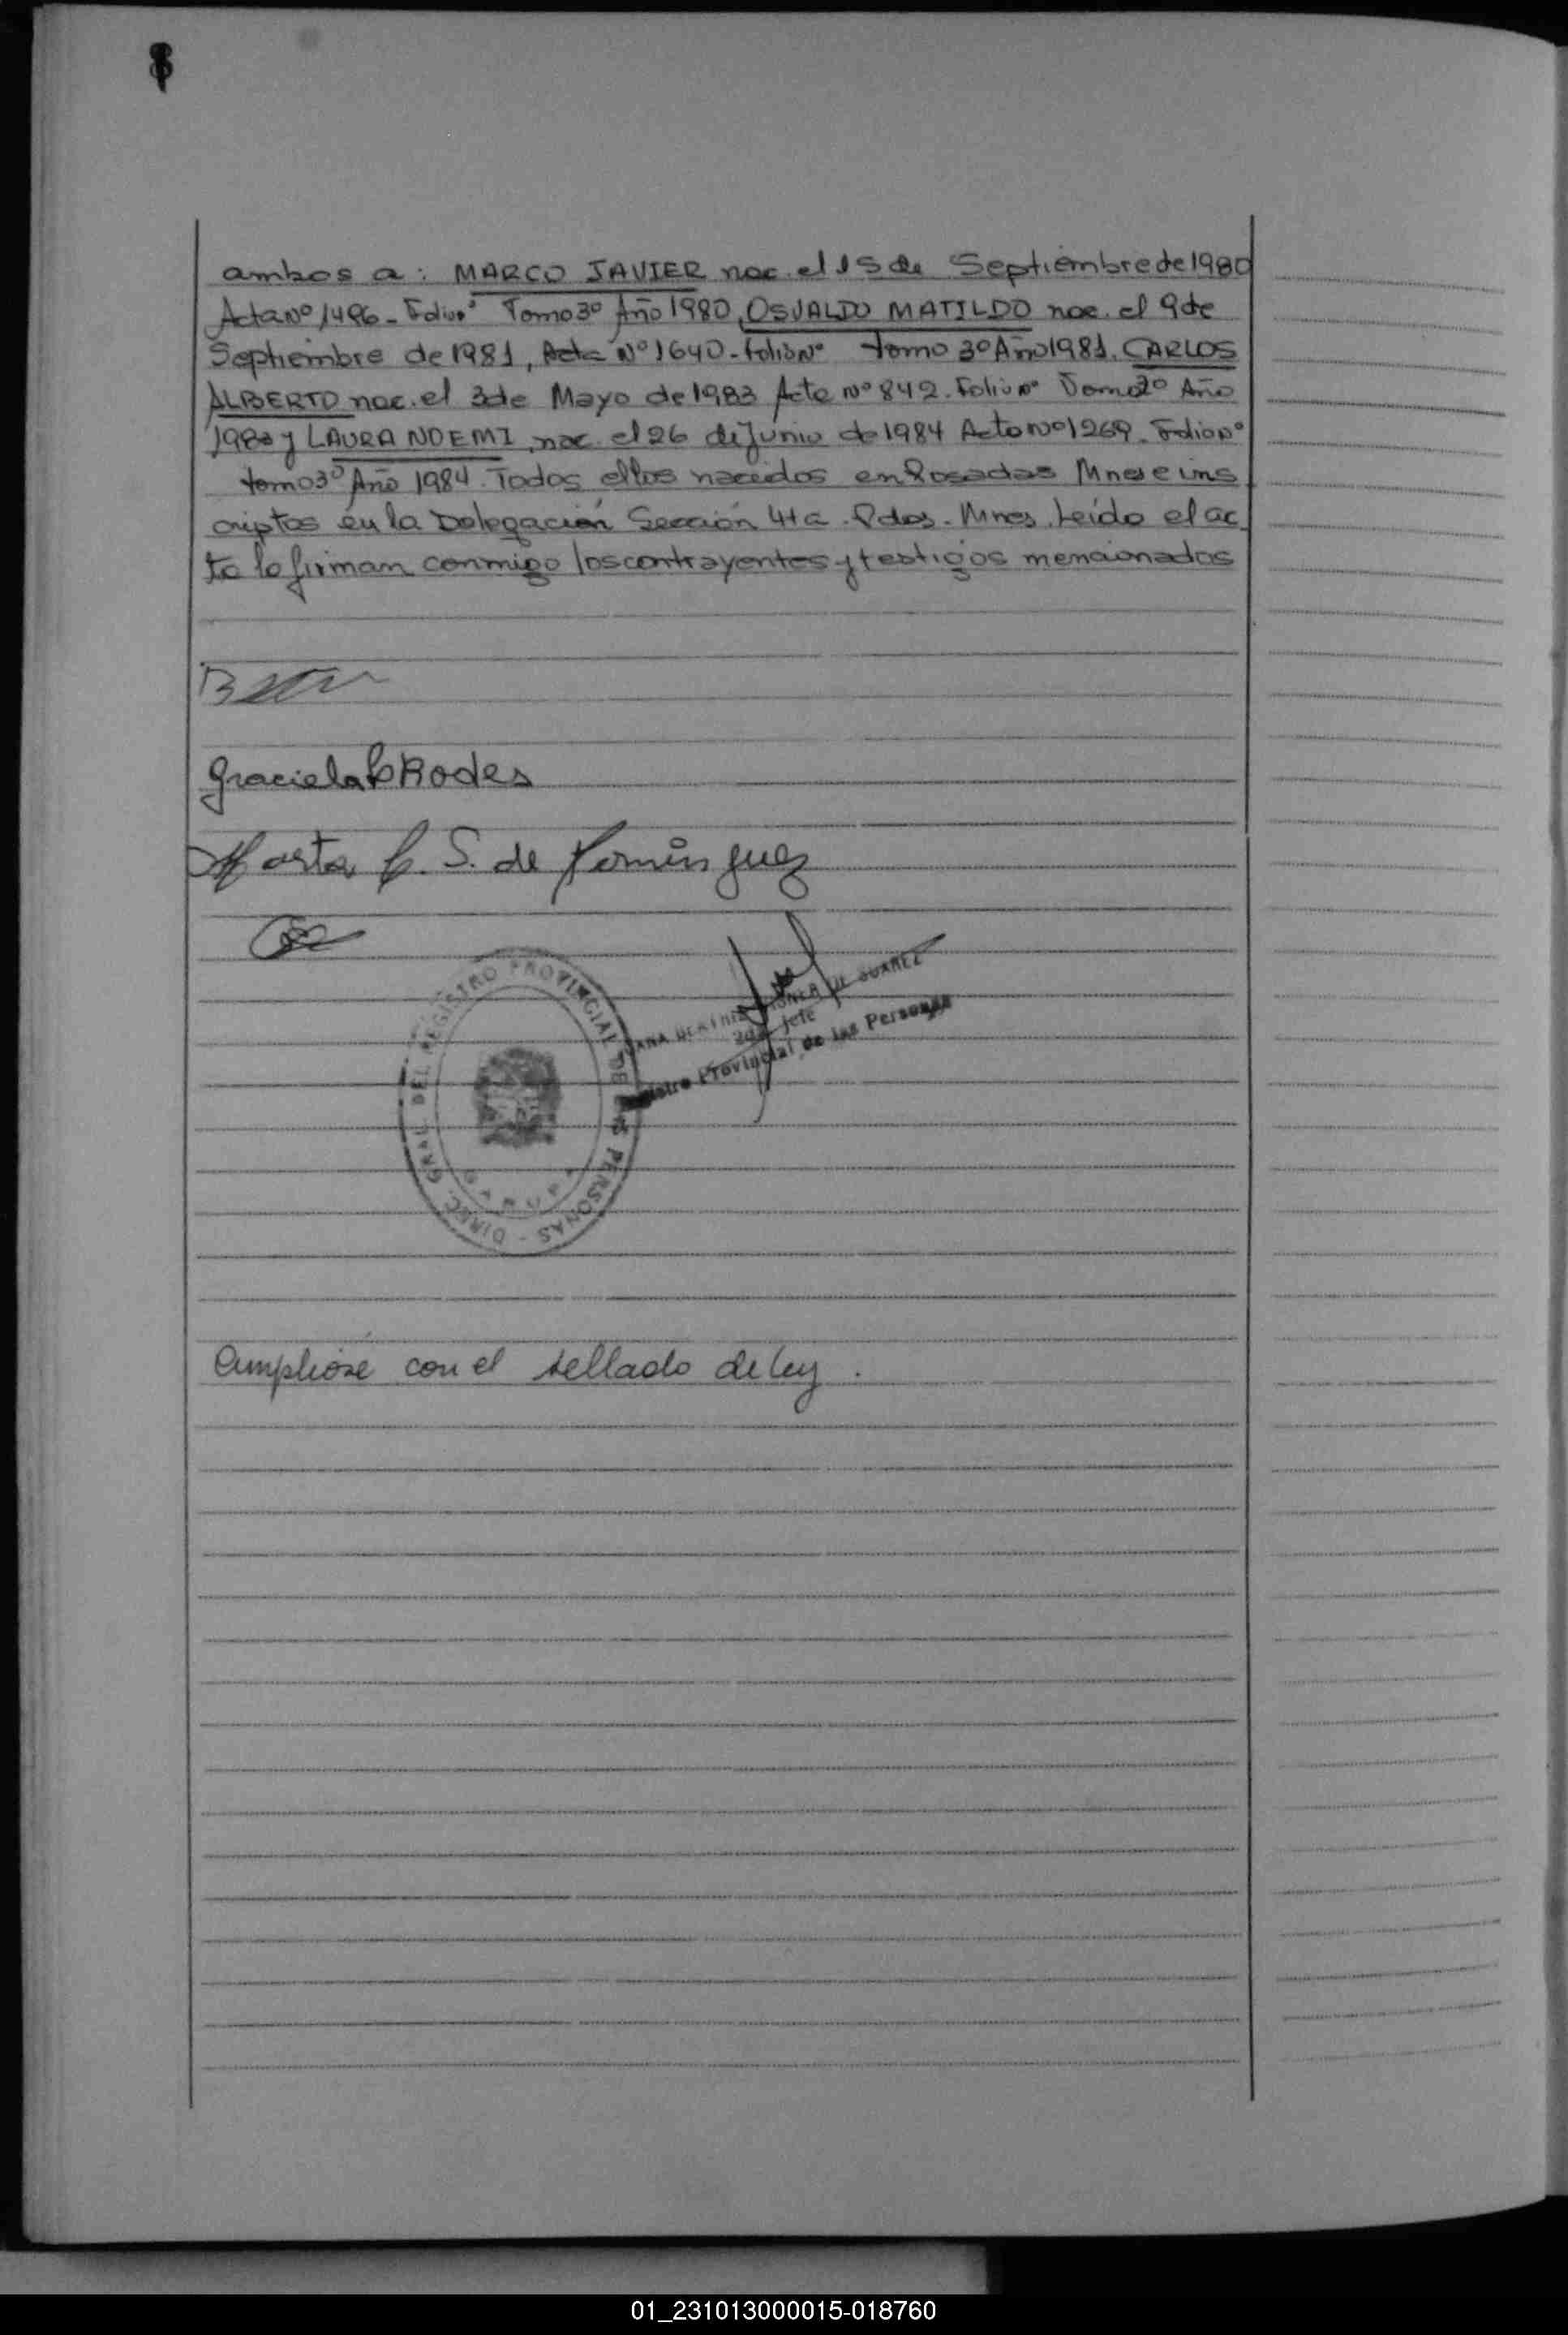 ambos a: MARCO JAVIER nac. el 15 de Septiembre de 1980
Acta Nº 1496 - Folio Nº Tomo 3º Año 1980, OSVALDO MATILDO nac. el 9 de
Septiembre de 1981, Acta Nº 1640 - Folio Nº tomo 3º Año 1981. CARLOS
ALBERTO nac. el 3 de Mayo de 1983 Acta Nº 842. Folio Nº Tomo 2º Año
1983 y LAURA NOEMI, nac. el 26 de Junio de 1984 Acta Nº 1269. Folio Nº
tomo 3º Año 1984. Todos ellos nacidos en Posadas Mnes e ins
criptos en la Delegación Sección 4ta. Pdas. Mnes. Leído el ac
ta la firman conmigo los contrayentes y testigos mencionados
Graciela Rodes
Marta C. S. de Domínguez
DE SUAREZ
2da. Jefe
Registro Provincial de las Personas
DIREC. GRAL. DEL REGISTRO PROVINCIAL DE LAS PERSONAS
Cumplióse con el sellado de ley.
01_231013000015-018760